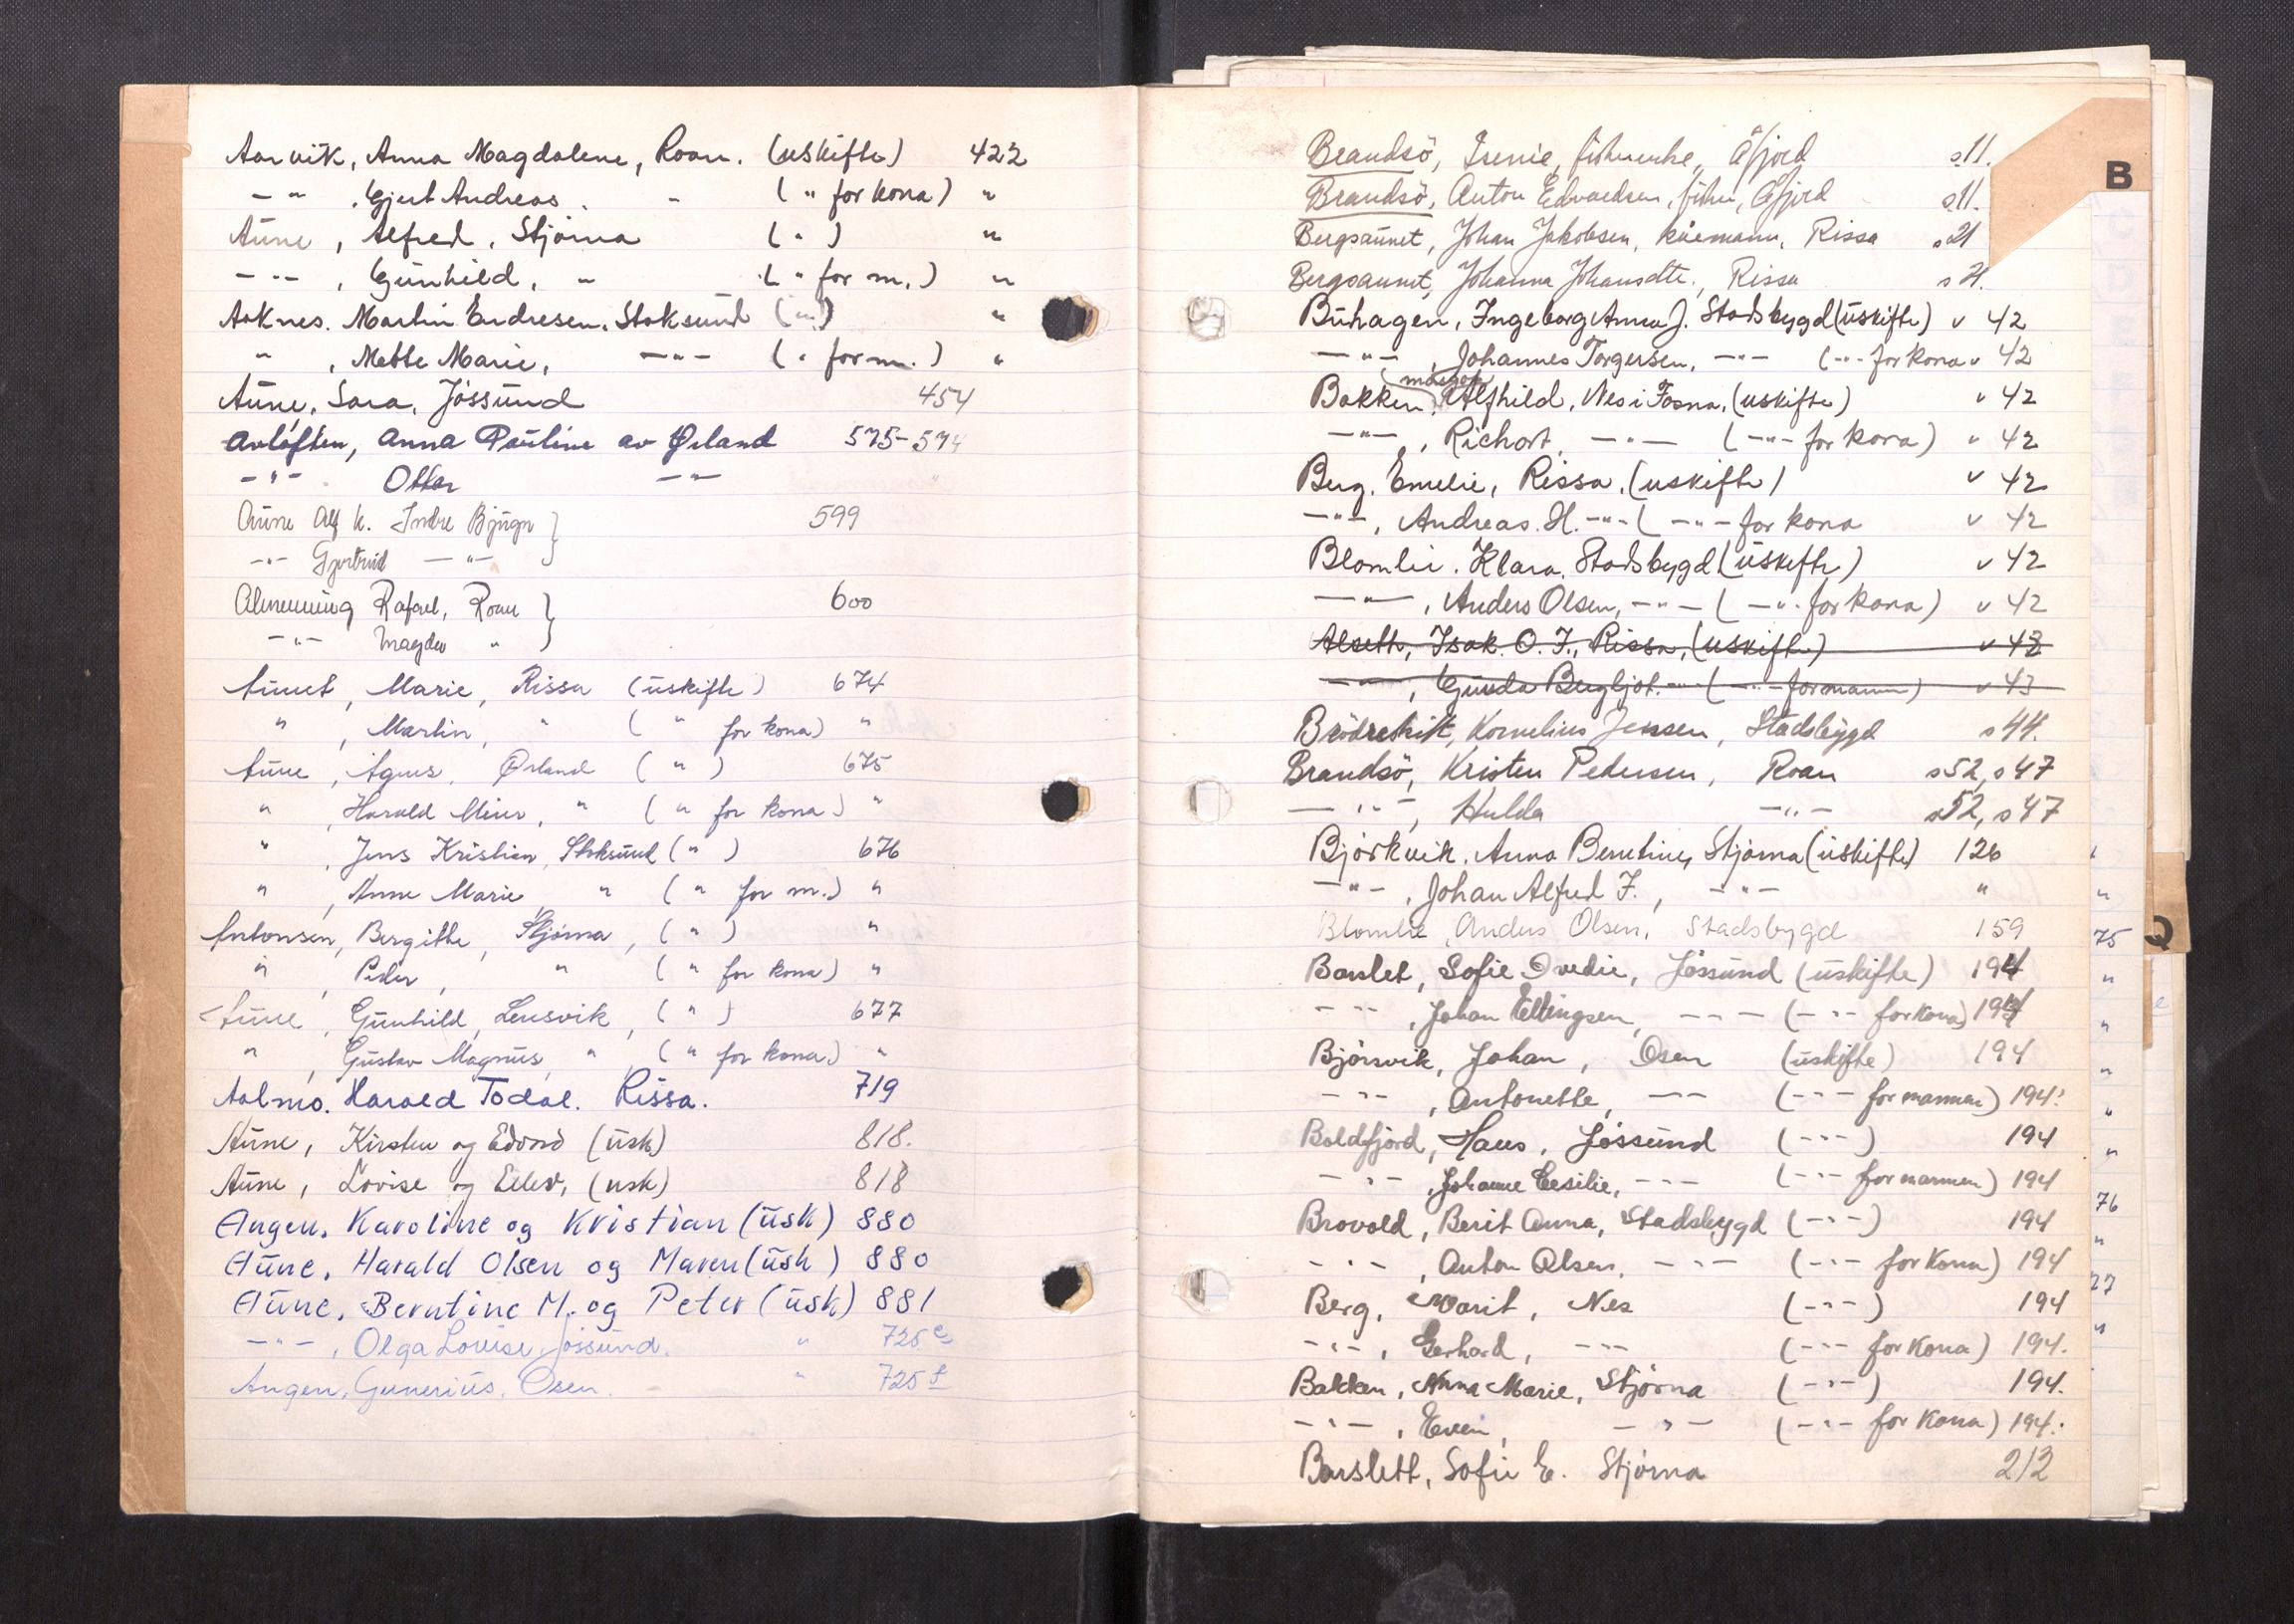 Aarvik, Anna Magdalene, Roan. (uskifte) 422
— " , Gjert Andreas. - ( " for kona) "
Aune, Alfred, Stjørna ( " ) "
— " — , Gunhild, " ( " for m.) "
Aaknes. Martin Endresen. Stoksund ( " ) "
" , Mette Marie, — " — ( " for m.) "
Aune, Sara, Jøssund 454
Avløften, Anna Pauline av Ørland 575-574
— " — Otter — " —
Aune Alf K. Indre Bjugn } 599
— " — Gjertrud — " —
Almenning Rafael, Roan } 600
— " — Magda "
Aunet, Marie, Rissa (uskifte) 674
" , Martin, " ( " for kona) "
Aune, Agnes, Ørland ( " ) 675
" , Harald Meier, " ( " for kona) "
" , Jens Kristian, Stoksund ( " ) 676
" , Anne Marie, " ( " for m.) "
Antonsen, Bergitte, Stjørna, ( " ) "
" , Peder, " ( " for kona) "
Aune, Gunhild, Lensvik, ( " ) 677
" , Gustav Magnus, " ( " for kona) "
Aalmo. Harald Todal. Rissa. 719
Aune, Kirsten og Edvard (usk) 818.
Aune, Lovise og Eilev, (usk) 818
Angen. Karoline og Kristian (usk) 880
Aune. Harald Olsen og Maren (usk) 880
Aune. Berntine M. og Peter (usk) 881
— " — , Olga Lovise, Jøssund. " 725 e
Angen, Gunerius, Osen. " 725 f
B
Brandsö, Isenie, fiskerenke, Åfjord s11.
Brandsö, Anton Edvardsen, fisker, Åfjord s11.
Bergsaunet, Johan Jakobsen, kårmann, Rissa s21
Bergsaunet, Johanna Johansdtr., Rissa s21.
Buhagen, Ingeborg Anna J. Stadsbygd (uskifte) v 42
— " — , Johannes Torgersen, — " — ( — " — for kona v 42
Bakken, Alfhild, Nes i Fosna, (uskifte) v 42
— " — , Richart, — " — ( — " — for kona) v 42
Berg. Emelie, Rissa, (uskifte) v 42
— " — , Andreas. H. — " — ( — " — for kona v 42
Blomlie. Klara. Stadsbygd (uskifte) v 42
— " — , Anders Olsen, — " — ( — " — for kona) v 42
Alseth, Isak. O. J., Rissa, (uskifte) v 43
— " — , Gunda Bergljot. — " — ( — " — for mannen) v 43
Brödreskift, Kornelius Jenssen, Stadsbygd s 44.
Brandsö, Kristen Pedersen, Roan s52, s47
— " — , Hulda — " — s52, s47
Björkvik, Anna Berntine, Stjørna (uskifte) 126
— " — , Johan Alfred J., — " — "
Blomlie, Anders Olsen, Stadsbygd 159
Barslet, Sofie Ovedie, Jøssund (uskifte) 194
— " — , Johan Ellingsen, — " — ( — " — for kona) 194
Björnvik, Johan, Osen (uskifte) 194
— " — , Antonette, — " — ( — " — for mannen) 194.
Boldfjord, Hans, Jøssund ( — " — ) 194
— " — , Johanne Cesilie, — " — ( — " — for mannen) 194
Brovold, Berit Anna, Stadsbygd ( — " — ) 194
— " — , Anton Olsen, — " — ( — " — for kona) 194
Berg, Marit, Nes ( — " — ) 194
— " — , Gerhard, — " — ( — " — for kona) 194.
Bakken, Anna Marie, Stjørna ( — " — ) 194.
— " — , Even, — " — ( — " — for kona) 194.
Barslett, Sofie E. Stjørna 212
75
Q
76
77